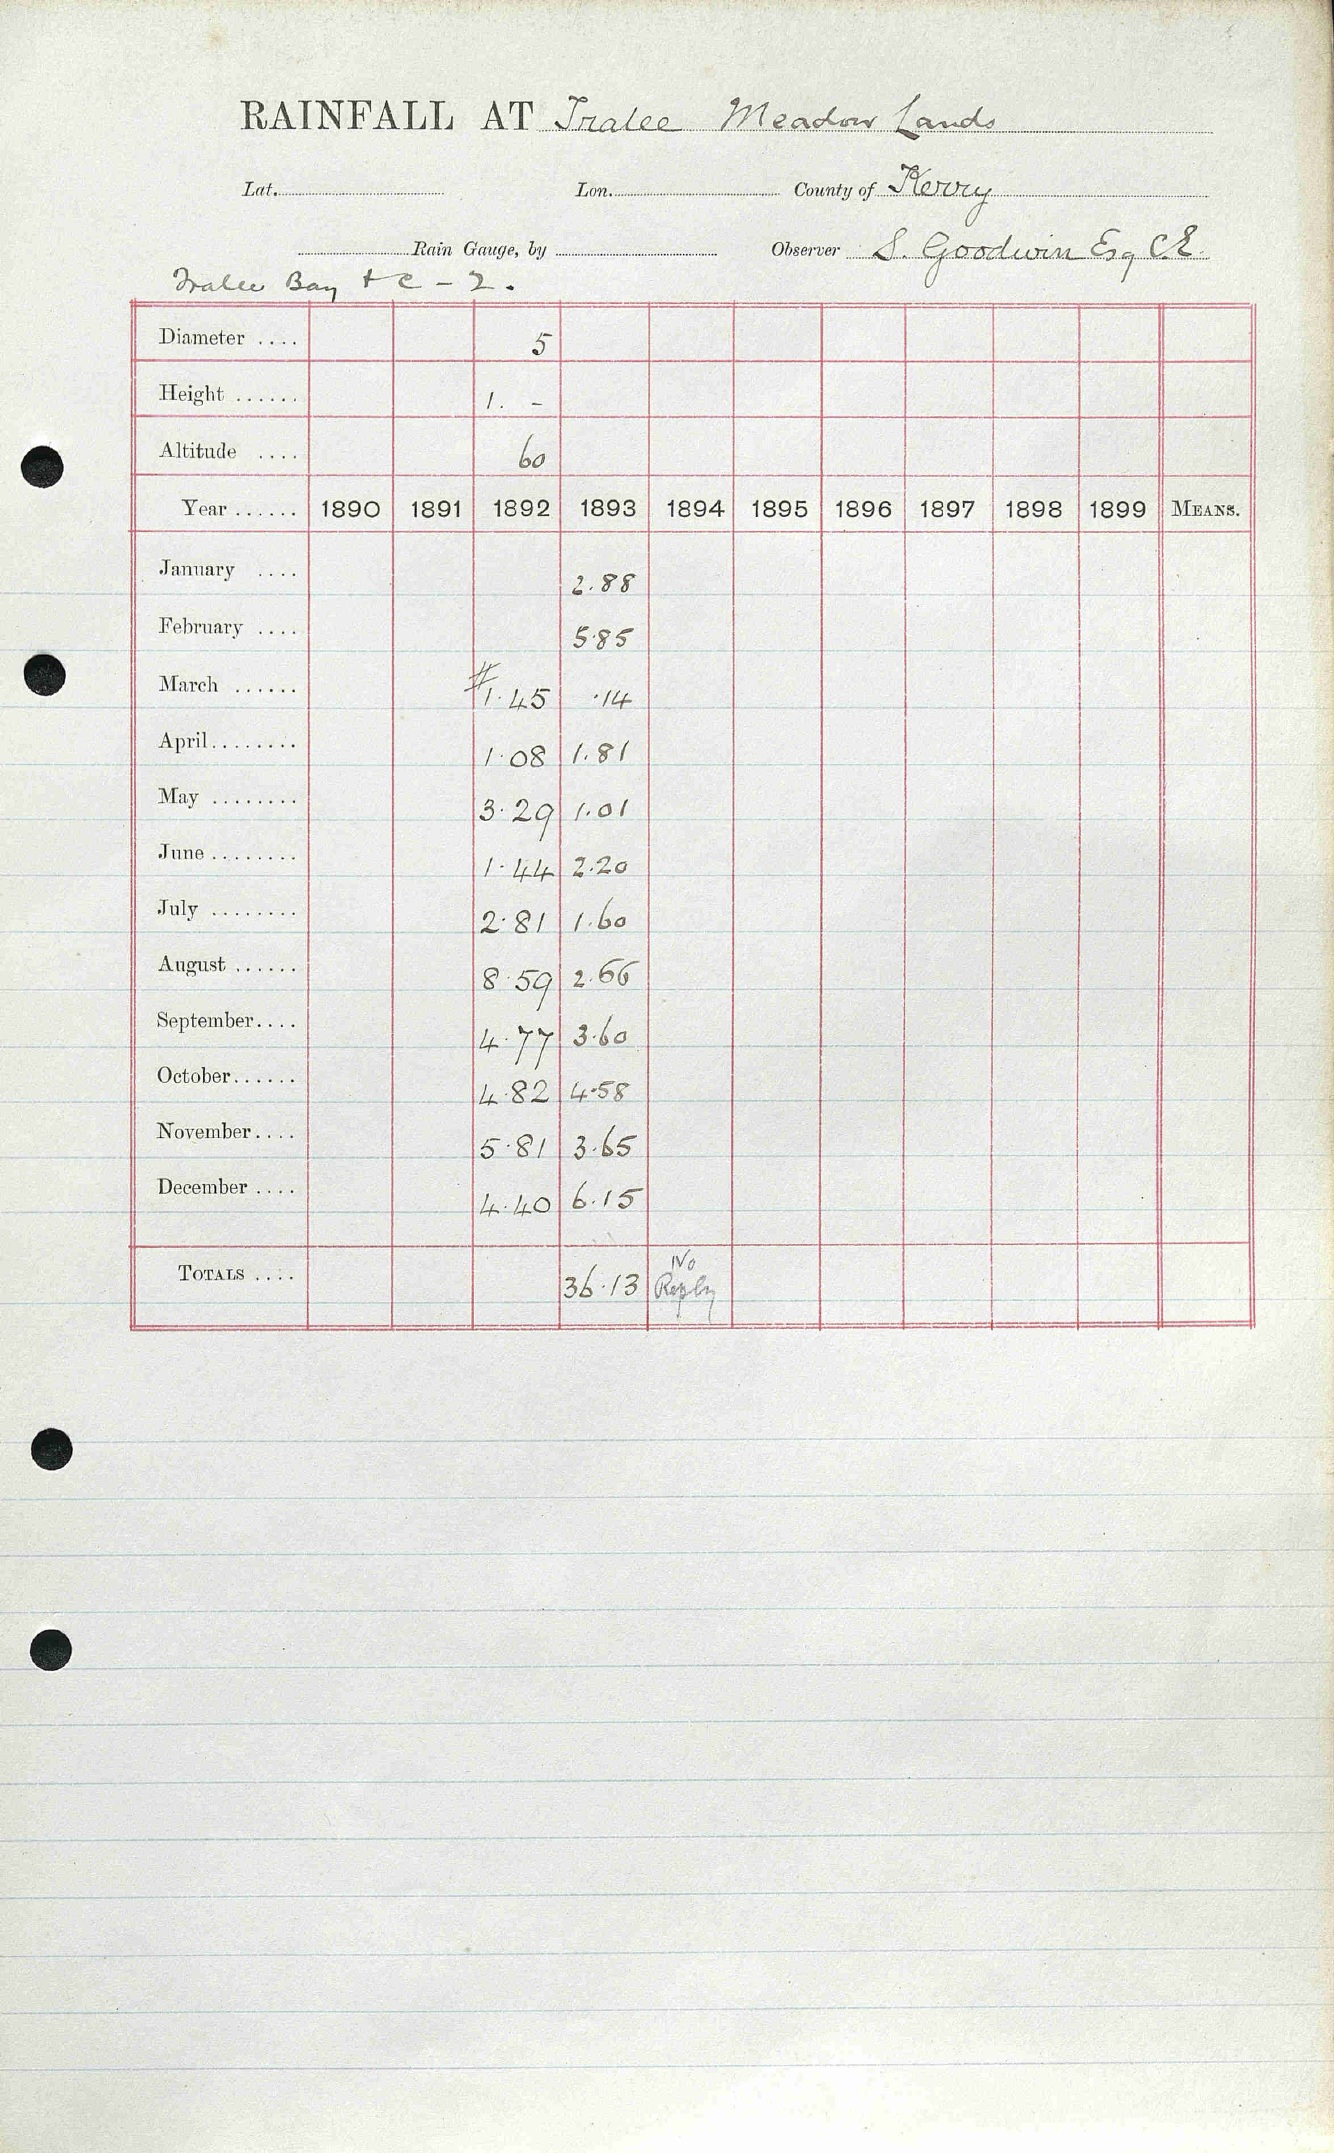 RAINFALL AT Tralee Meadow Lands
Lat. Lon. County of Kerry
Rain Gauge, by Observer S. Goodwin Esq C.E.
Tralee Bay + c - 2.
Diameter .... 5
Height ...... 1. -
Altitude .... 60
Year ...... 1890 1891 1892 1893 1894 1895 1896 1897 1898 1899 MEANS.
January .... 2.88
February .... 5.85
March ...... # 1.45 .14
April ........ 1.08 1.81
May ........ 3.29 1.01
June ........ 1.44 2.20
July ........ 2.81 1.60
August ...... 8.59 2.66
September.... 4.77 3.60
October...... 4.82 4.58
November.... 5.81 3.65
December .... 4.40 6.15
TOTALS .... 36.13 No Reply